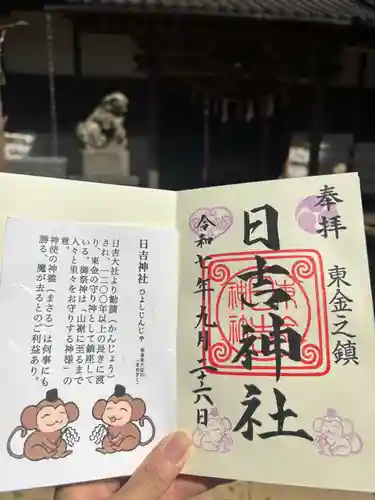 日吉神社 ひよしじんじゃ
日吉大社より勧請(かんじょう)
され、一二〇〇年以上の長きに渡
り、東金の守り神として鎮座して
いる。御祭神は「山裾に至るまで
人々と里々をお守りする神様」の
意。
神使の神猿(まさる)は何事にも
勝る、魔が去るとのご利益あり。
奉拝
東金之鎮
日吉神社
令和七年九月二十六日